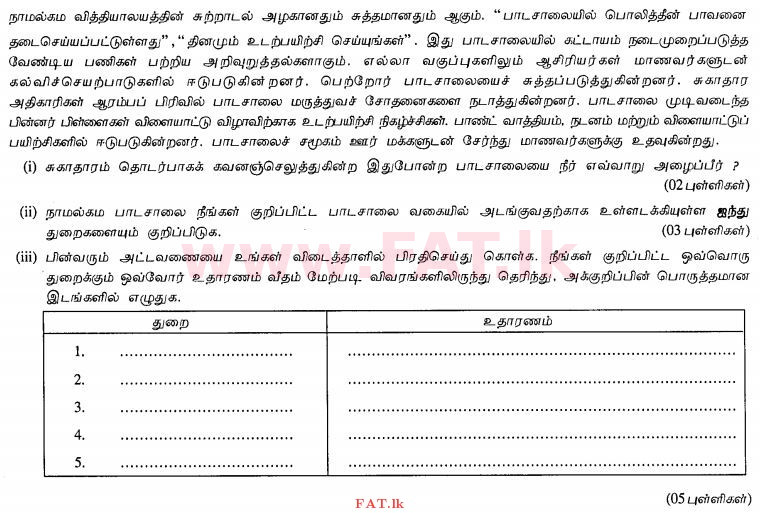 நாமல்கம வித்தியாலயத்தின் சுற்றாடல் அழகானதும் சுத்தமானதும் ஆகும். “பாடசாலையில் பொலித்தீன் பாவனை
தடைசெய்யப்பட்டுள்ளது”, “தினமும் உடற்பயிற்சி செய்யுங்கள்”. இது பாடசாலையில் கட்டாயம் நடைமுறைப்படுத்த
வேண்டிய பணிகள் பற்றிய அறிவுறுத்தல்களாகும். எல்லா வகுப்புகளிலும் ஆசிரியர்கள் மாணவர்களுடன்
கல்விச்செயற்பாடுகளில் ஈடுபடுகின்றனர். பெற்றோர் பாடசாலையைச் சுத்தப்படுத்துகின்றனர். சுகாதார
அதிகாரிகள் ஆரம்பப் பிரிவில் பாடசாலை மருத்துவச் சோதனைகளை நடாத்துகின்றனர். பாடசாலை முடிவடைந்த
பின்னர் பிள்ளைகள் விளையாட்டு விழாவிற்காக உடற்பயிற்சி நிகழ்ச்சிகள். பாண்ட் வாத்தியம், நடனம் மற்றும் விளையாட்டுப்
பயிற்சிகளில் ஈடுபடுகின்றனர். பாடசாலைச் சமூகம் ஊர் மக்களுடன் சேர்ந்து மாணவர்களுக்கு உதவுகின்றது.
(i) சுகாதாரம் தொடர்பாகக் கவனஞ்செலுத்துகின்ற இதுபோன்ற பாடசாலையை நீர் எவ்வாறு அழைப்பீர் ?
(02 புள்ளிகள்)
(ii) நாமல்கம பாடசாலை நீங்கள் குறிப்பிட்ட பாடசாலை வகையில் அடங்குவதற்காக உள்ளடக்கியுள்ள ஐந்து
துறைகளையும் குறிப்பிடுக. (03 புள்ளிகள்)
(iii) பின்வரும் அட்டவணையை உங்கள் விடைத்தாளில் பிரதிசெய்து கொள்க. நீங்கள் குறிப்பிட்ட ஒவ்வொரு
துறைக்கும் ஒவ்வோர் உதாரணம் வீதம் மேற்படி விவரங்களிலிருந்து தெரிந்து, அக்குறிப்பின் பொருத்தமான
இடங்களில் எழுதுக.
துறை உதாரணம்
1. ........................................ ........................................
2. ........................................ ........................................
3. ........................................ ........................................
4. ........................................ ........................................
5. ........................................ ........................................
www.FAT.lk
FAT.lk
(05 புள்ளிகள்)